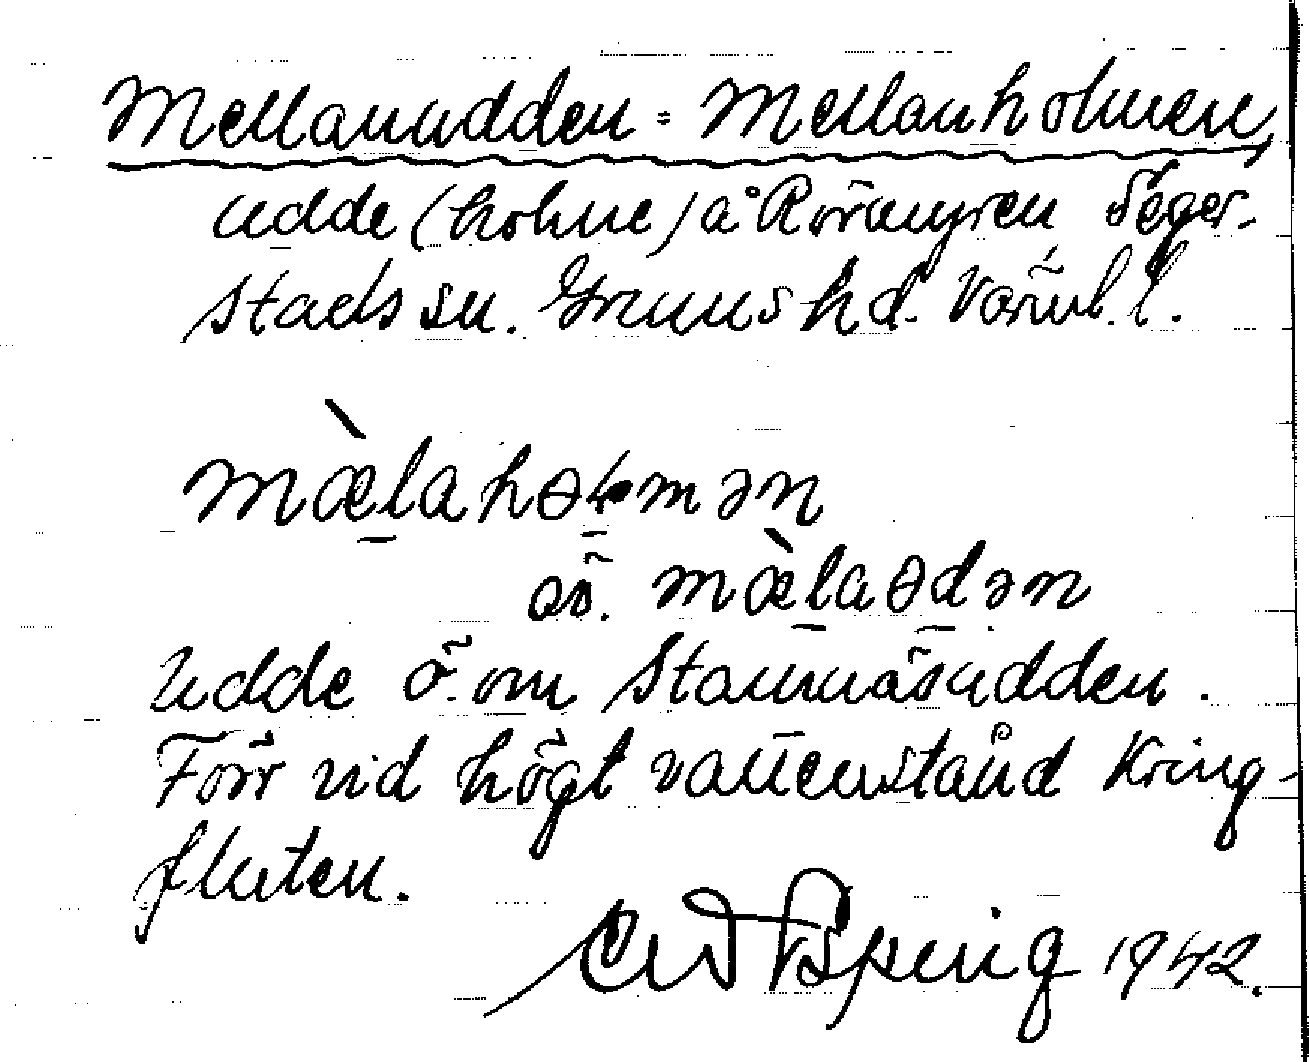 Mellanudden = Mellanholmen,
udde (holme) å Rörmyren Seger-
stads sn. Grums hd. Värml. l.
mæ̀lahɵɫmən
äv. mæ̀laɵdən
Udde ö. om Stannäsudden.
Förr vid högt vattenstånd kring-
fluten.
1942.